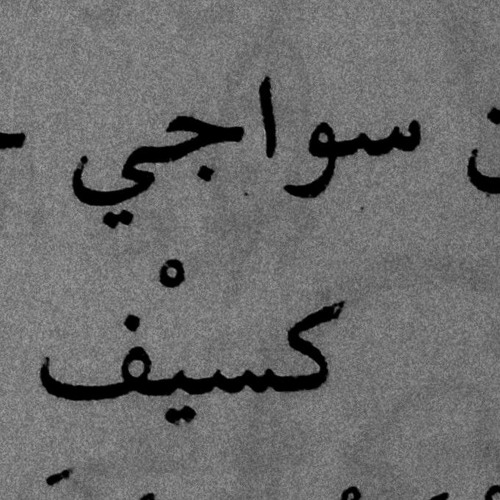 سواجي
كسيفْ